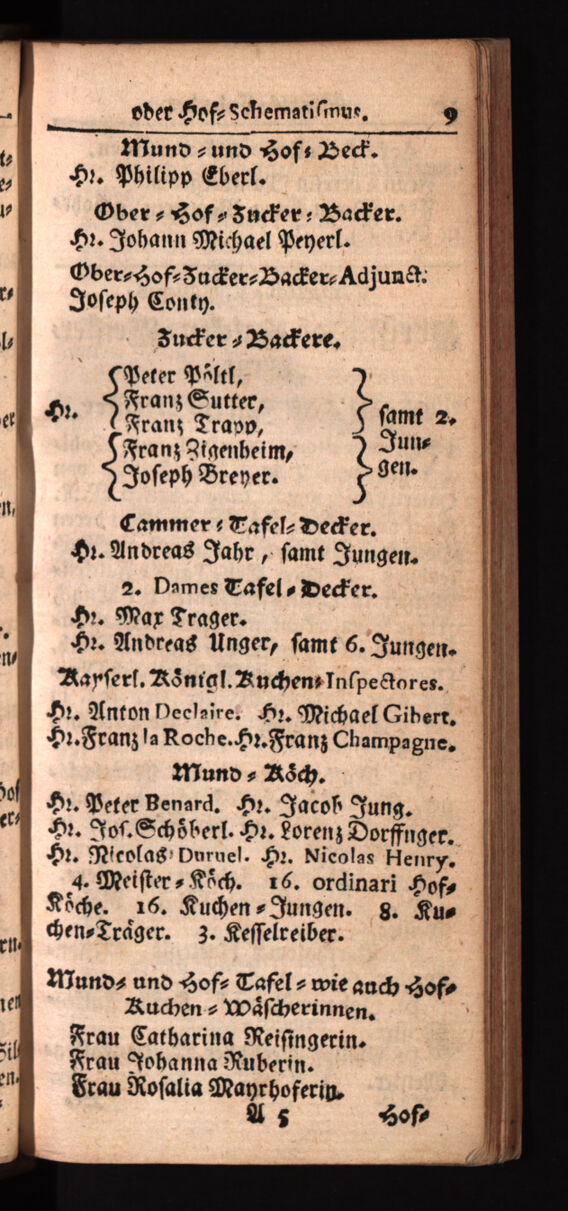 oder Hof⸗Schematiſmus. 9
Mund⸗und Hof⸗Beck.
Hr. Philipp Eberl.
Ober⸗Hof⸗Zucker⸗Backer.
Hr. Johann Michael Peyerl.
Ober⸗Hof⸗Zucker⸗Backer⸗Adjunct.
Joſeph Conty.
Zucker⸗Backere.
Peter Pöltl,
Franz Sutter,
Hr. Franz Trapp, ſamt 2.
Franz Zigenheim, Jun⸗
Joſeph Breyer. gen.
Cammer⸗Tafel⸗Decker.
Hr. Andreas Jahr, ſamt Jungen.
2. Dames Tafel⸗Decker.
Hr. Max Trager.
Hr. Andreas Unger, ſamt 6. Jungen.
Kayſerl. Königl. Kuchen⸗Inſpectores.
Hr. Anton Declaire. Hr. Michael Gibert.
Hr. Franz la Roche. Hr. Franz Champagne.
Mund⸗Köch.
Hr. Peter Benard. Hr. Jacob Jung.
Hr. Joſ. Schöberl. Hr. Lorenz Dorffnger.
Hr. Nicolas Duruel. Hr. Nicolas Henry.
4. Meiſter⸗Köch. 16. ordinari Hof⸗
Köche. 16. Kuchen⸗Jungen. 8. Ku⸗
chen⸗Träger. 3. Keſſelreiber.
Mund⸗ und Hof⸗Tafel⸗wie auch Hof⸗
Kuchen⸗Wäſcherinnen.
Frau Catharina Reiſingerin.
Frau Johanna Ruberin.
Frau Roſalia Mayrhoferin.
A 5 Hof⸗